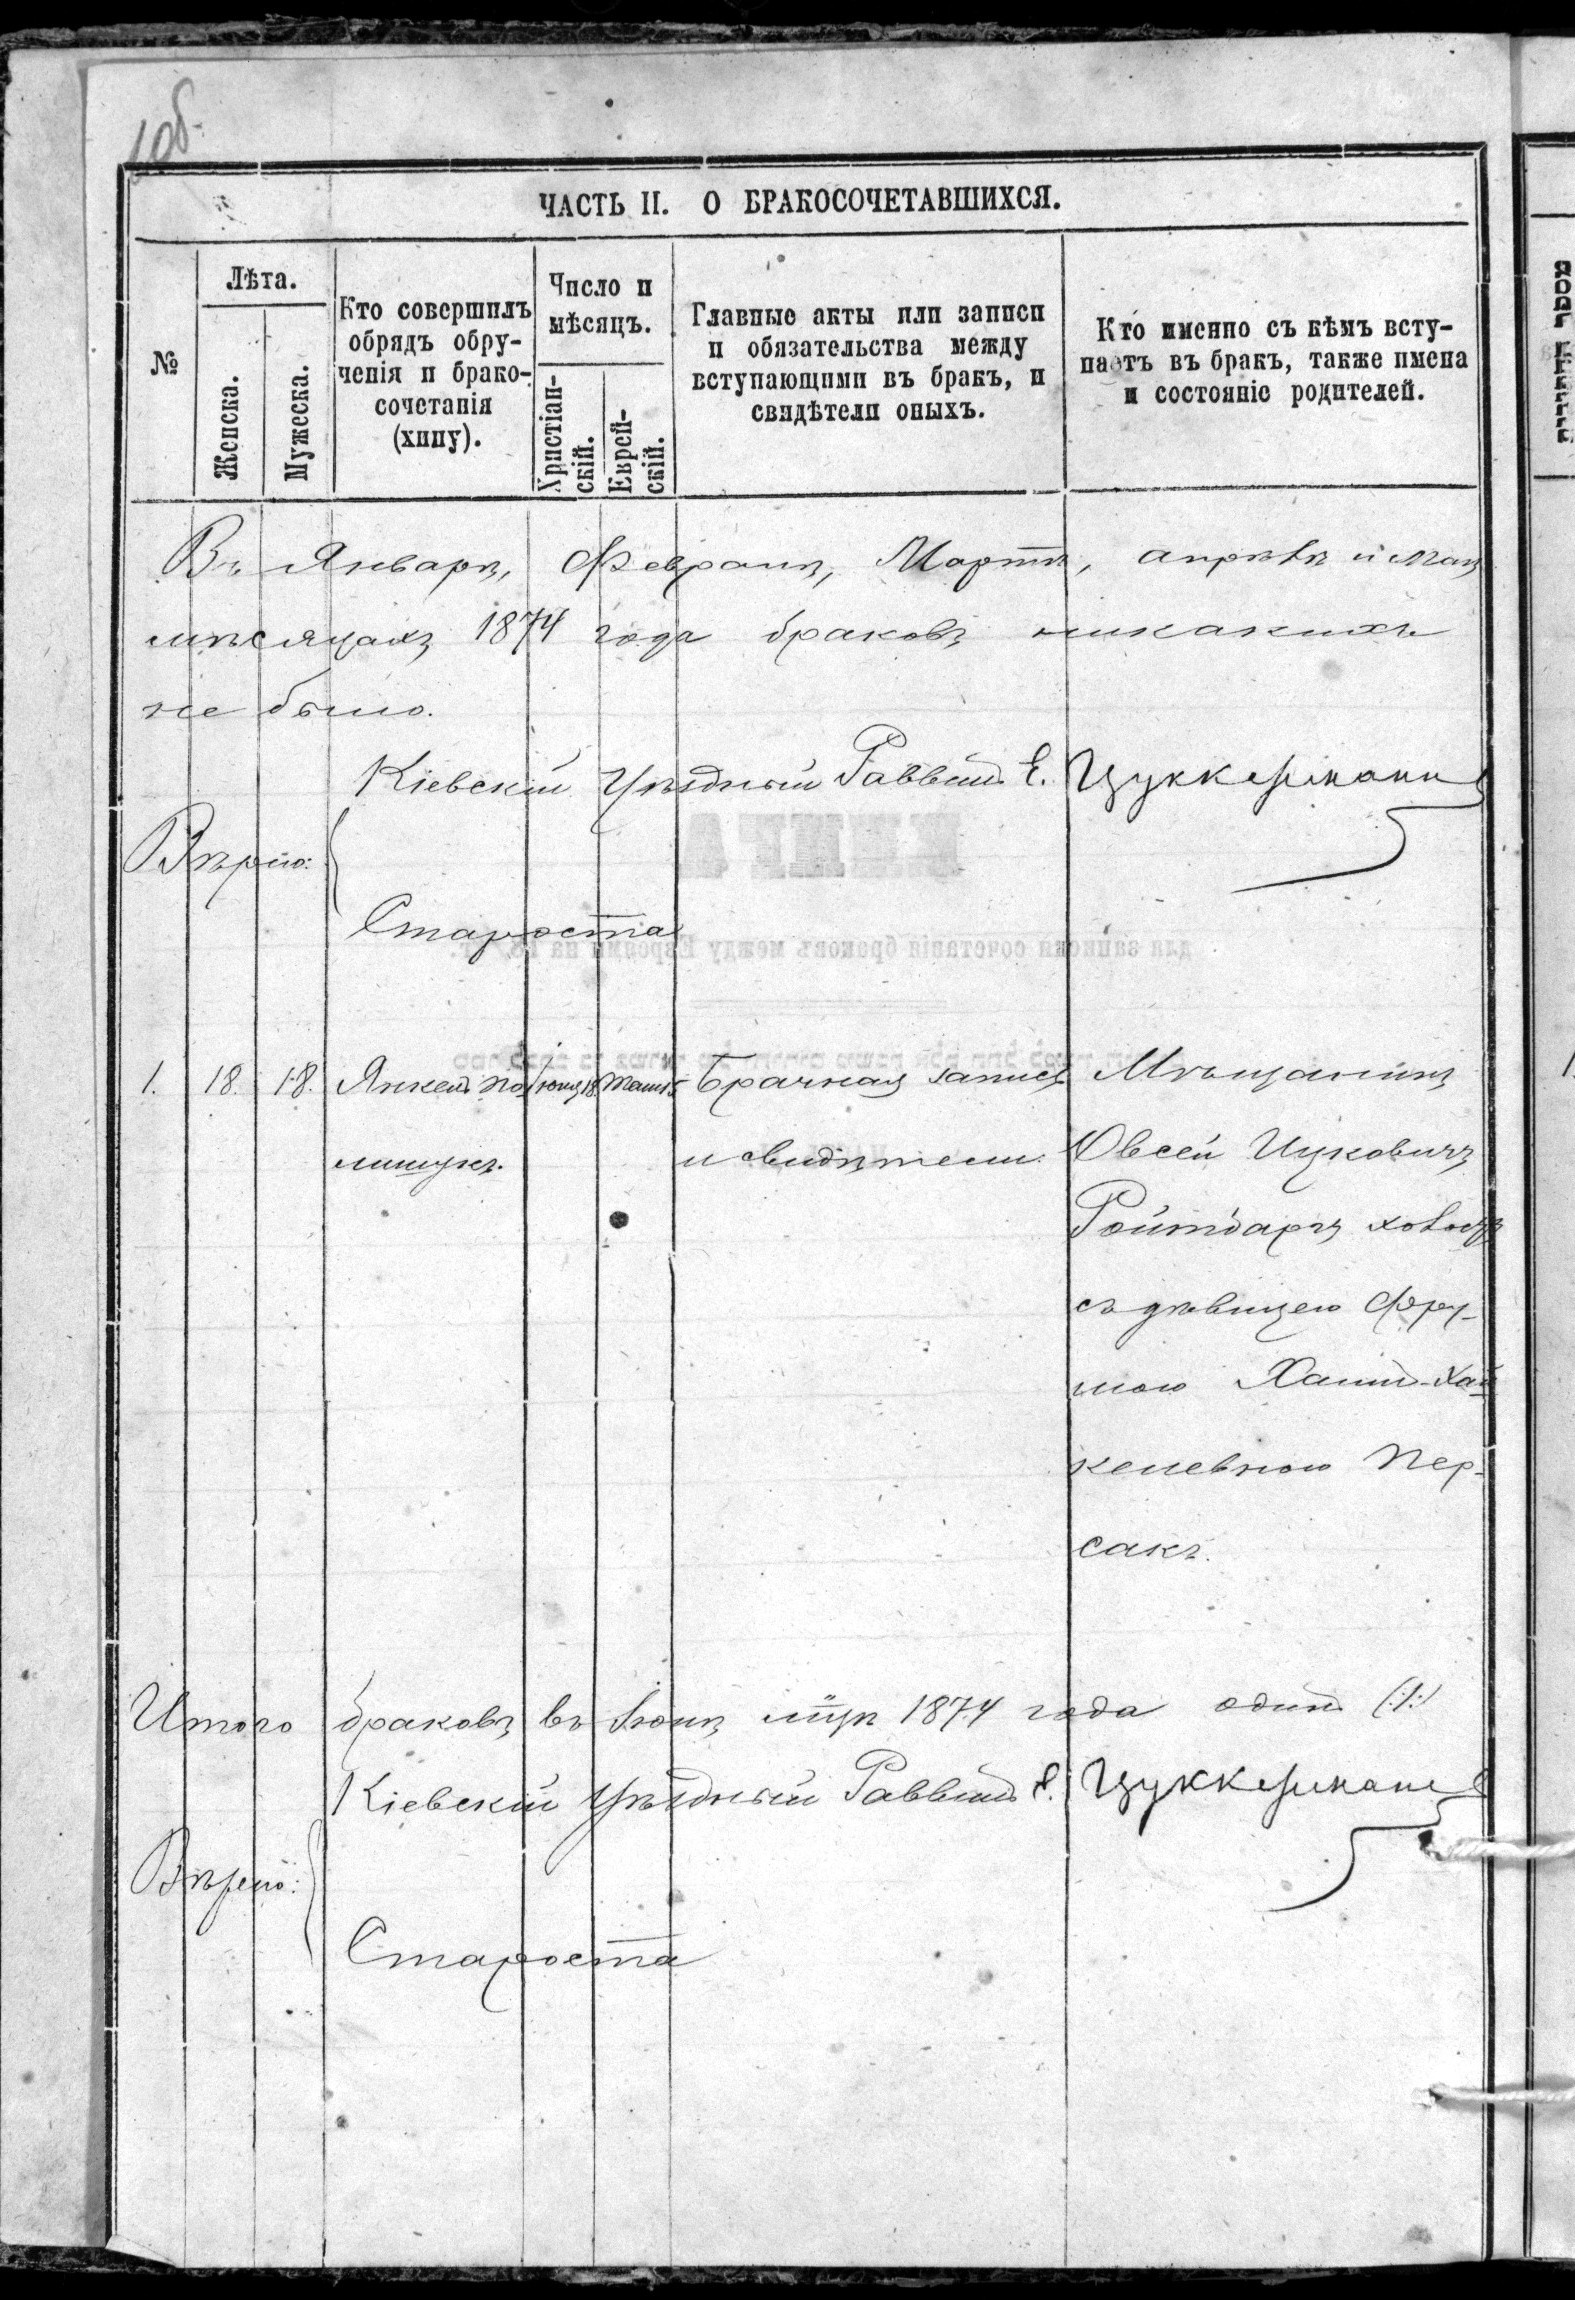 1 об.
ЧАСТЬ II. О БРАКОСОЧЕТАВШИХСЯ.
№
Лѣта.
Женска.
Мужеска.
Кто совершилъ
обрядъ обру-
ченія и брако-
сочетанія
(хупу).
Число и
мѣсяцъ.
Христіан-
скій.
Еврей-
скій.
Главные акты или записи
и обязательства между
вступающими въ бракъ, и
свидѣтели оныхъ.
Кто именно съ кѣмъ всту-
паетъ въ бракъ, также имена
и состояніе родителей.
Въ Январѣ, Февралѣ, Мартѣ, апрѣлѣ и маѣ
мѣсяцахъ 1874 года браковъ никакихъ
не было.
Кіевскій Уѣздный Раввинъ Е. Цуккерманъ
Вѣрно:
Староста
1. 18. 18. Янкель По- Іюня 18. Тамз 15 Брачная запись Мѣщанинъ
лищукъ. и свидѣтели. Овсей Ицковичъ
Ройтбаръ холостъ
съ дѣвицею Фру-
мою Хаимъ-Хай
келевною Пер-
сакъ.
Итого браковъ въ Іюнѣ мцѣ 1874 года одинъ (:1:)
Кіевскій Уѣздный Раввинъ Е. Цуккерманъ
Вѣрно:
Староста